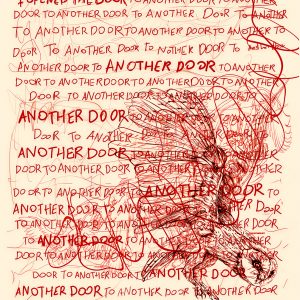 I OPENED THE DOOR TO ANOTHER DOOR TO ANOTHER
DOOR TO ANOTHER DOOR TO ANOTHER DOOR TO ANOTHER
TO ANOTHER DOOR TO ANOTHER DOOR TO ANOTHER DOOR TO
DOOR TO ANOTHER DOOR TO ANOTHER DOOR TO
ANOTHER DOOR TO ANOTHER DOOR TO ANOTHER
DOOR TO ANOTHER DOOR TO ANOTHER DOOR TO ANOTHER
DOOR TO ANOTHER DOOR TO ANOTHER DOOR TO
ANOTHER DOOR TO ANOTHER DOOR TO ANOTHER
DOOR TO ANOTHER DOOR TO ANOTHER DOOR TO
ANOTHER DOOR TO ANOTHER DOOR TO ANOTHER
DOOR TO ANOTHER DOOR TO ANOTHER DOOR TO ANOTHER
DOOR TO ANOTHER DOOR TO ANOTHER DOOR TO
ANOTHER DOOR TO ANOTHER DOOR TO ANOTHER DOOR
TO ANOTHER DOOR TO ANOTHER DOOR TO ANOTHER
TO ANOTHER DOOR TO ANOTHER DOOR TO ANOTHER
DOOR TO ANOTHER DOOR TO ANOTHER DOOR TO
DOOR TO ANOTHER DOOR TO ANOTHER DOOR
ANOTHER DOOR TO ANOTHER DOOR TO ANOTHER